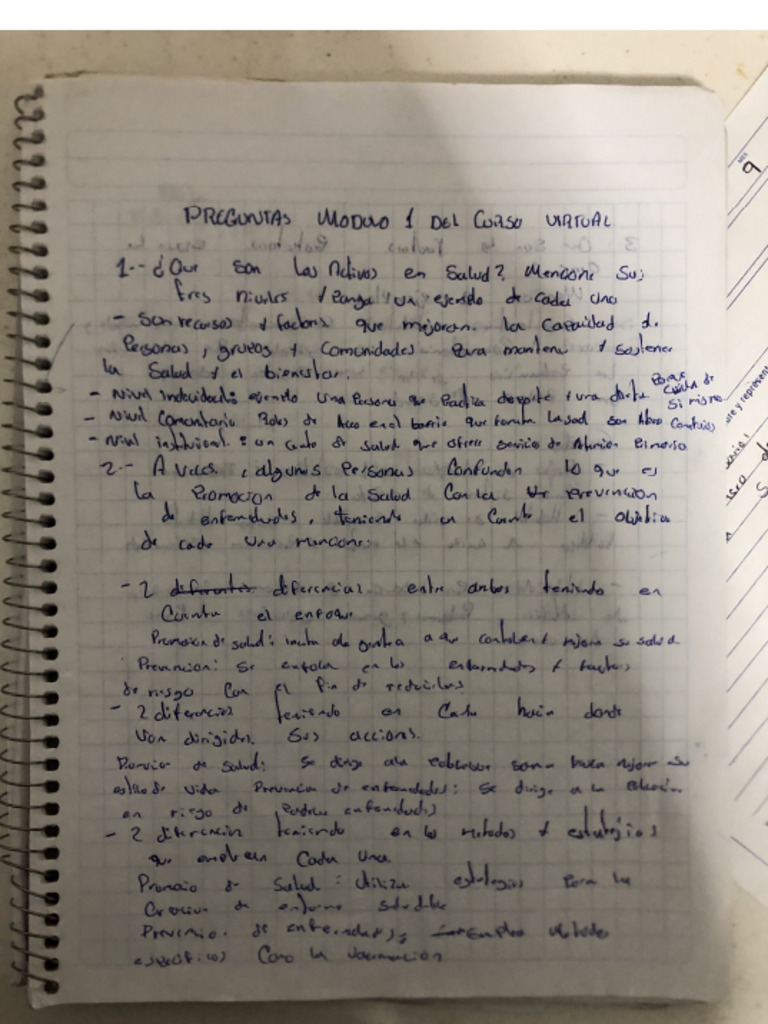 PREGUNTAS MODULO 1 DEL CURSO VIRTUAL
1.- ¿Que son Los Activos en Salud? Mencione Sus
tres niveles y ponga un ejemplo de cada uno
- Son recursos y factores que mejoran la capacidad de
Personas, grupos y Comunidades Para mantener y sostener
la Salud y el bienestar.
- Nivel Individual: ejemplo Una Persona que Practica deporte y una dieta Porque cuida de si misma
- Nivel Comunitario Roles de en el barrio que la salud son
- Nivel institucional: un centro de salud que ofrece servicio de Atencion Primaria
2.- A veces, algunas Personas Confunden lo que es
la Promocion de la Salud Con la Prevencion
de enfermedades, teniendo en Cuenta el objetivo
de cada una mencione:
- 2 diferentes diferencias entre ambos teniendo en
Cuenta el enfoque
Promocion de salud: la gente a que controlen y mejoren su salud
Prevencion: Se enfoca en las enfermedades y factores
de riesgo Con el fin de reducirlos
- 2 diferencias teniendo en Cuenta hacia donde
van dirigidas Sus acciones.
Promocion de Salud: Se dirige a la poblacion sana busca mejorar su
estilo de vida Prevencion de enfermedades: Se dirige a la poblacion
en riesgo de enfermedades
- 2 diferencias teniendo en los metodos y estrategias
que emplean Cada una
Promocio de Salud: Utiliza estrategias Para la
Creacion de entorno saludable
Prevencio. de enfermedades, emplea metodos
especificos Como la vacunacion
9